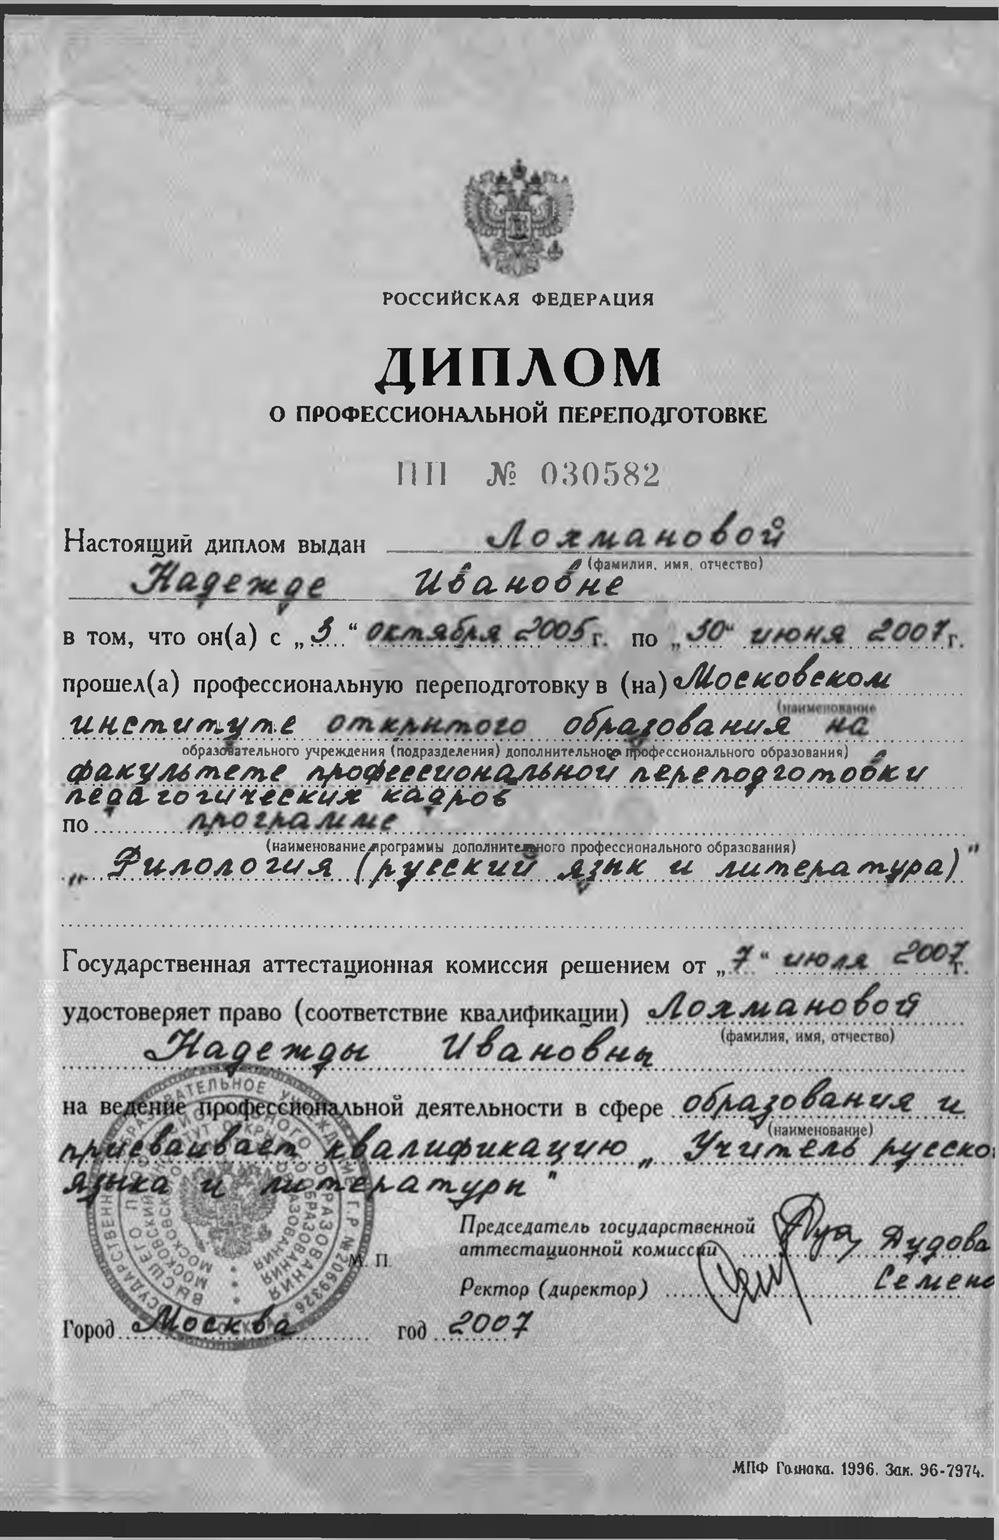 РОССИЙСКАЯ ФЕДЕРАЦИЯ
ДИПЛОМ
О ПРОФЕССИОНАЛЬНОЙ ПЕРЕПОДГОТОВКЕ
ПП № 030582
Настоящий диплом выдан Лохмановой
(фамилия, имя, отчество)
Надежде Ивановне
в том, что он(а) с „3“ октября 2005 г. по „30“ июня 2007 г.
прошел(а) профессиональную переподготовку в (на) Московском
(наименование
институте открытого образования на
образовательного учреждения (подразделения) дополнительного профессионального образования)
факультете профессиональной переподготовки
педагогических кадров
по программе
(наименование программы дополнительного профессионального образования)
„Филология (русский язык и литература)"
Государственная аттестационная комиссия решением от „7“ июля 2007 г.
удостоверяет право (соответствие квалификации) Лохмановой
(фамилия, имя, отчество)
Надежды Ивановны
на ведение профессиональной деятельности в сфере образования и
(наименование)
присваивает квалификацию „Учитель русско
языка и литературы"
Председатель государственной
аттестационной комиссии Дудова
Ректор (директор) Семено
М. П.
Город Москва год 2007
МПФ Гознака. 1996. Зак. 96-7974.